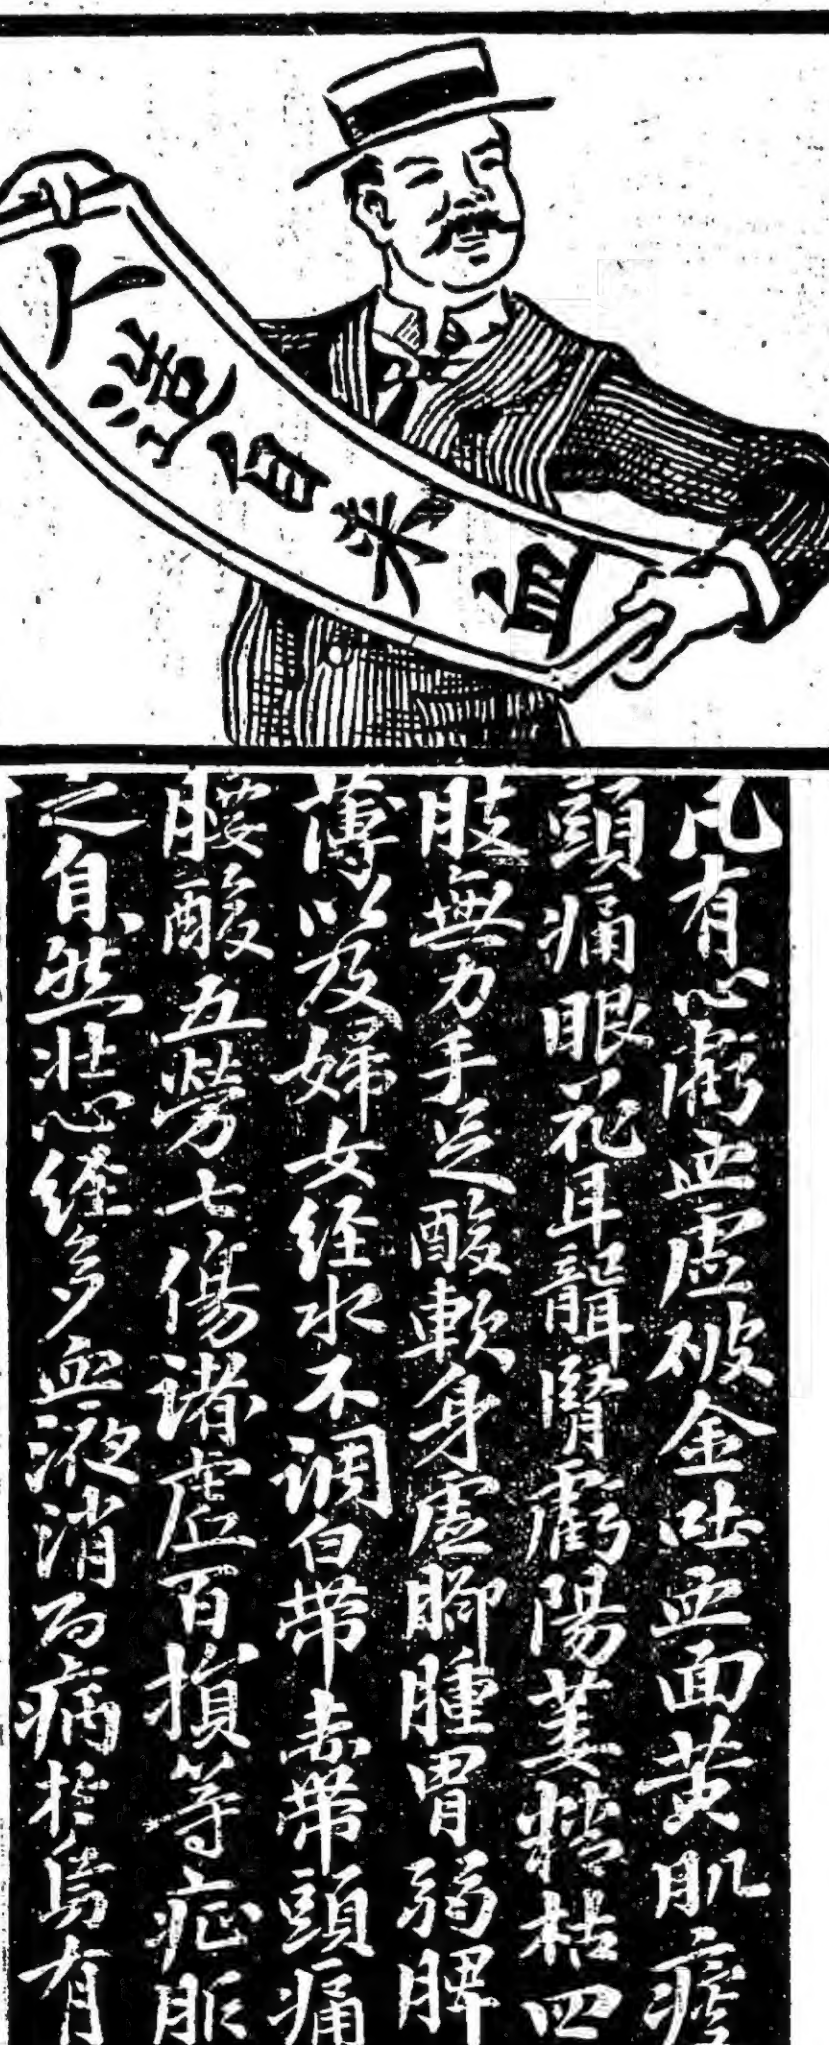 人造自來血
凡有心虧血虛破金吐血面黃肌瘦
頭痛眼花耳聾腎虧陽萎精枯四
肢無力手足酸軟身虛腳腫胃弱脾
薄以及婦女經水不調白帶赤帶頭痛
腰酸五勞七傷諸虛百損等症服
之自然壯心經多血液消百病於烏有